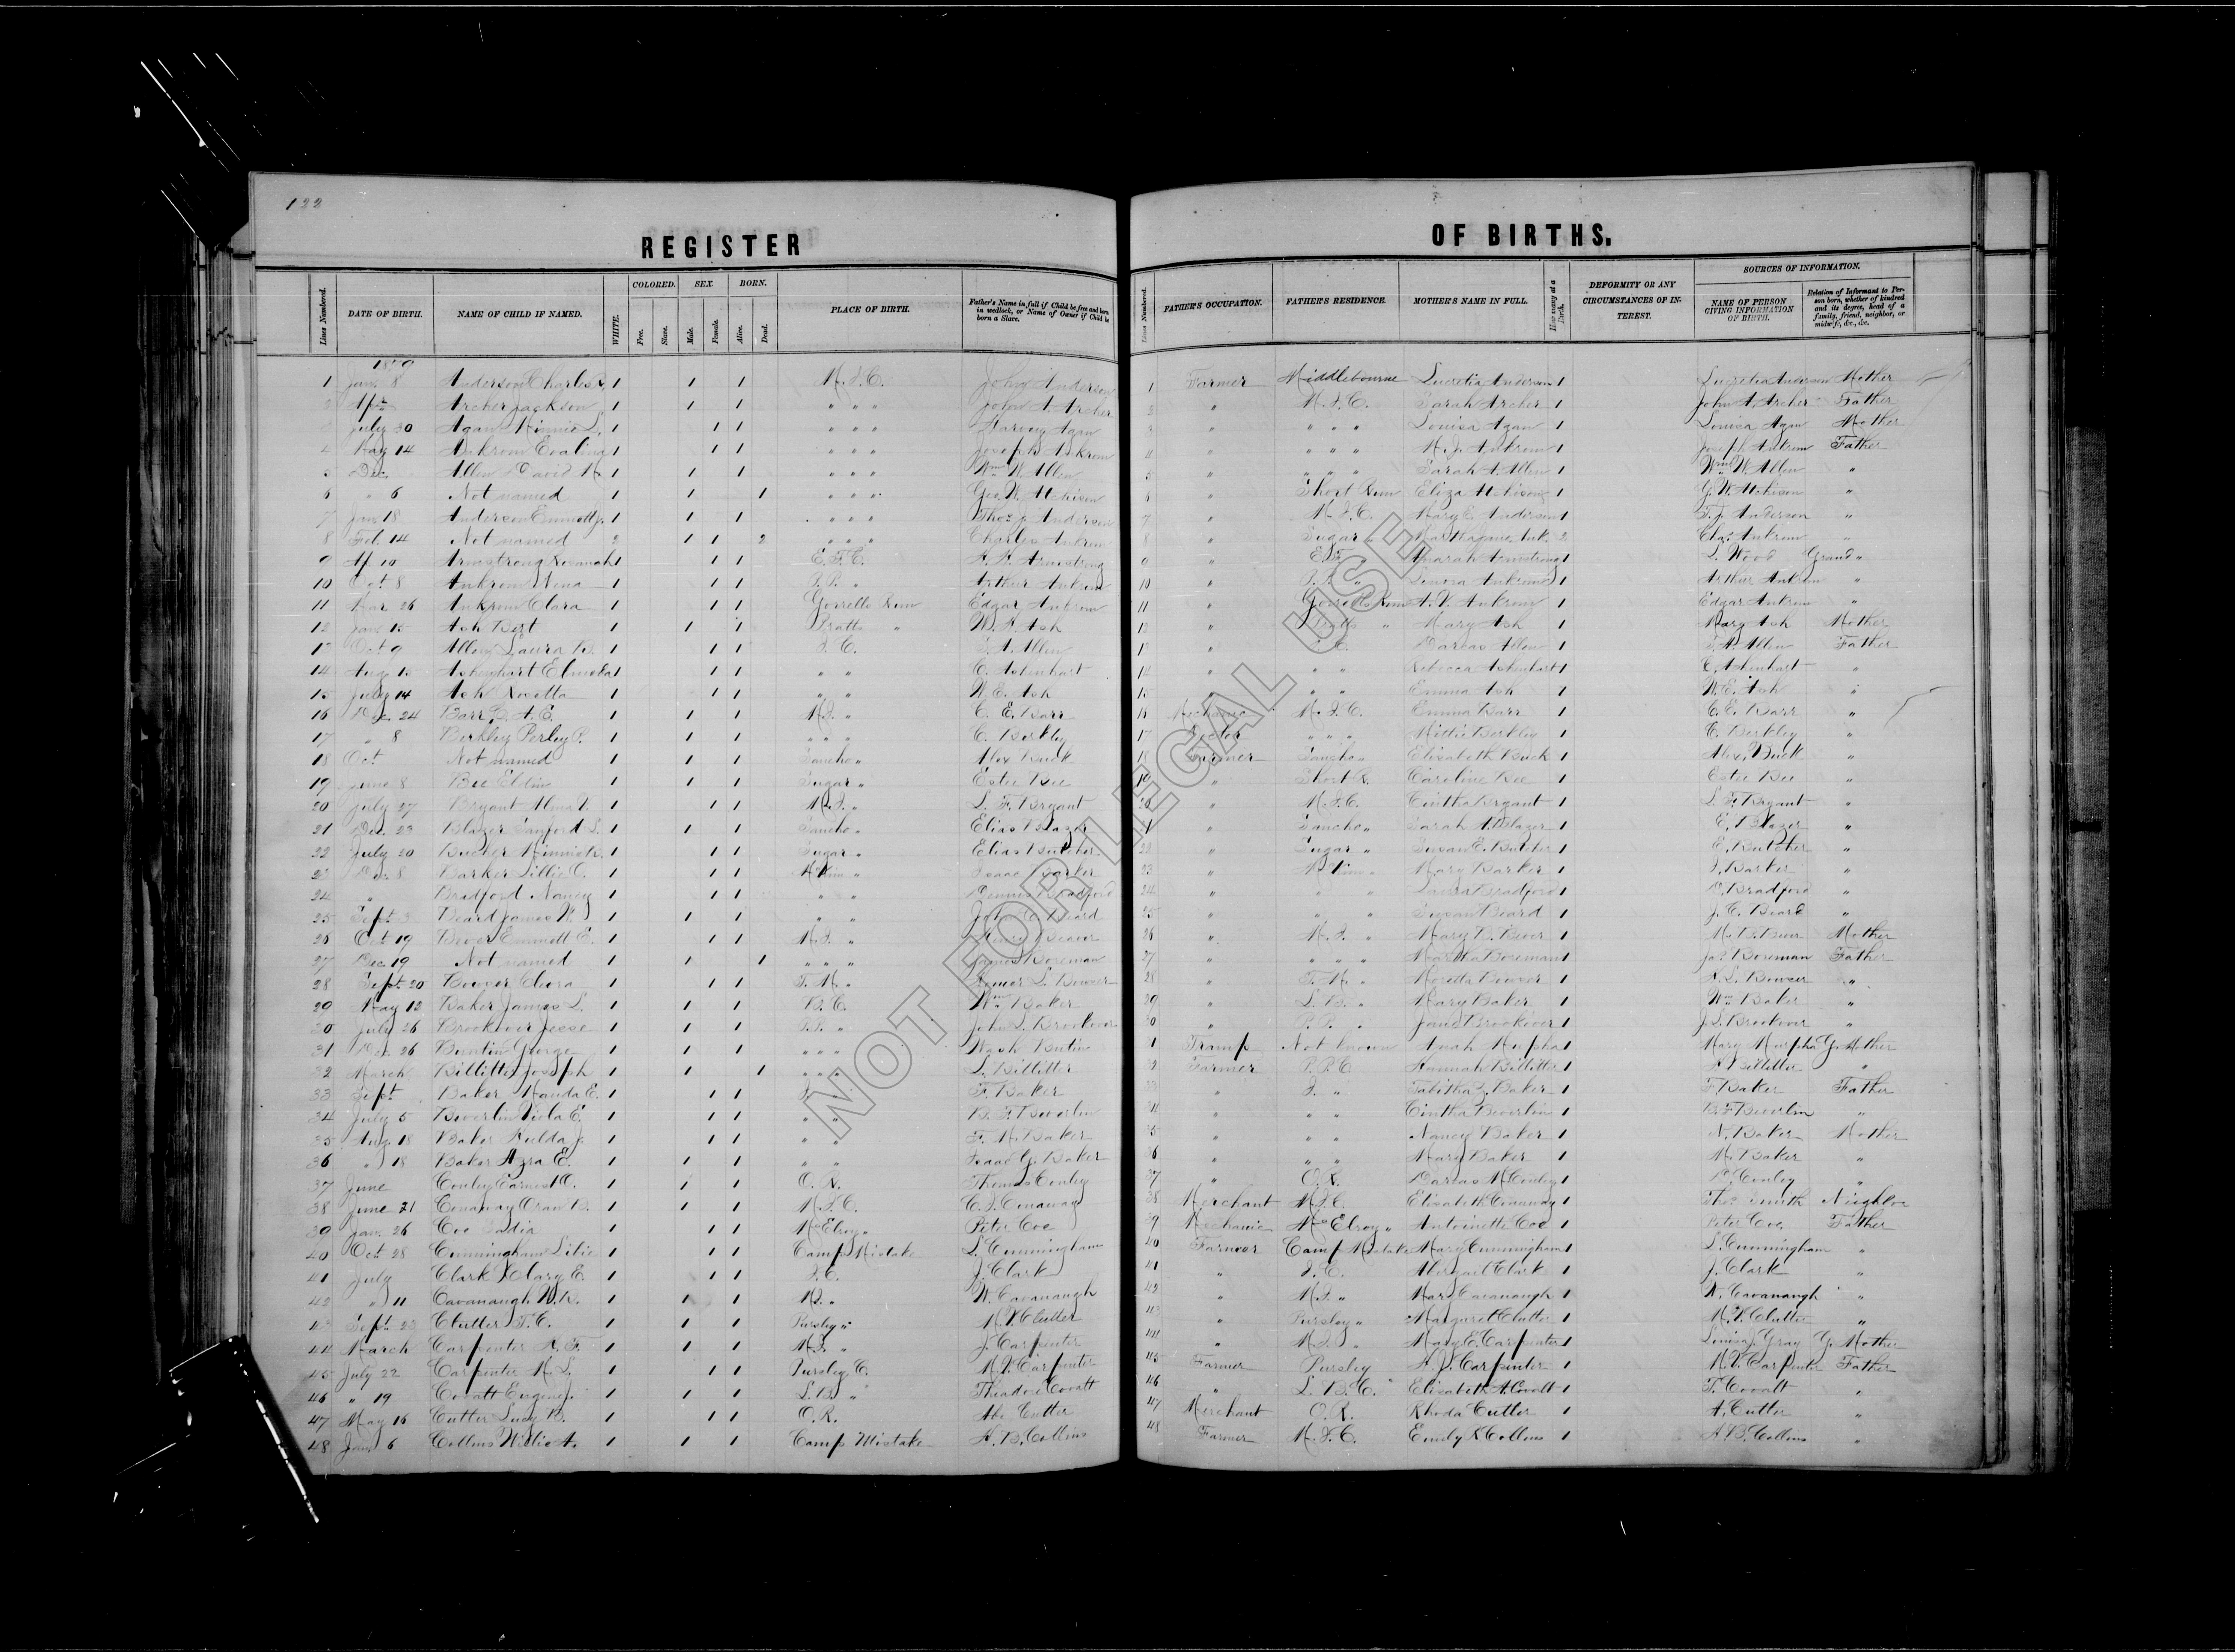 122
REGISTER OF BIRTHS.
Lines Numbered. DATE OF BIRTH. NAME OF CHILD IF NAMED. WHITE. COLORED. Free. Slave. SEX. Male. Female. BORN. Alive. Dead. PLACE OF BIRTH. Father's Name in full if Child be free and born in wedlock, or Name of Owner if Child be born a Slave. Lines Numbered. FATHER'S OCCUPATION. FATHER'S RESIDENCE. MOTHER'S NAME IN FULL. How many at a Birth. DEFORMITY OR ANY CIRCUMSTANCES OF INTEREST. SOURCES OF INFORMATION. NAME OF PERSON GIVING INFORMATION OF BIRTH. Relation of Informant to Person born, whether of kindred and its degree, head of a family, friend, neighbor, or midwife, &c., &c.
1879
1 Jan. 8 Anderson Charles 1 1 1 M.I.C. John Anderson 1 Farmer Middlebourne Lucretia Anderson 1 Lucretia Anderson Mother
2 Apr Archer Jackson 1 1 1 " " " John A. Archer 2 " M.I.C. Sarah Archer 1 John A. Archer Father
3 July 30 Agan Minnie L. 1 1 1 " " " Harvey Agan 3 " " " " Louisa Agan 1 Louisa Agan Mother
4 May 14 Ankrom Evaline 1 1 1 " " " Joseph Ankrom 4 " " " " M. J. Ankrom 1 Joseph Ankrom Father
5 Dec. Allen David M 1 1 1 " " " Wm W. Allen 5 " " " " Sarah A. Allen 1 Wm W. Allen "
6 " 6 Not named 1 1 1 " " " Geo. W. Atchison 6 " Short Run Eliza Atchison 1 G. W. Atchison "
7 Jan 18 Anderson Emmett J. 1 1 1 " " " Thos J. Anderson 7 " M.I.C. Mary C. Anderson 1 T. J. Anderson "
8 Feb 14 Not named 2 1 1 2 " " " Charles Ankrom 8 " Sugar " 2 Chas Ankrom "
9 Ap 10 Armstrong Savanah 1 1 1 E.F.C. Armstrong 9 " E.F. " Armstrong 1 L. Wood Grand "
10 Oct 8 Ankrom Nena 1 1 1 P.P. " Arthur Ankrom 10 " P.P. " Louisa Ankrom 1 Arthur Ankrom "
11 Mar 26 Ankrom Clara 1 1 1 Gorrells Run Edgar Ankrom 11 " Gorrells Run A. V. Ankrom 1 Edgar Ankrom "
12 Jan 15 Ash Bert 1 1 1 Pratts " W. A. Ash 12 " Pratts " Mary Ash 1 Mary Ash Mother
13 Oct 9 Allen Laura B. 1 1 1 I. C. T. A. Allen 13 " I. C. Darcas Allen 1 T. A. Allen Father
14 Aug 15 Ashenhart Elmeda 1 1 1 " " C. Ashenhart 14 " " " Rebecca Ashenhart 1 C. Ashenhart "
15 July 14 Ash Rosetta 1 1 1 " " W. E. Ash 15 " " " Emma Ash 1 W. E. Ash "
16 Dec. 24 Barr C. A. E. 1 1 1 M.I. " C. E. Barr 16 Mechanic M.I.C. Emma Barr 1 C. E. Barr "
17 " 8 Berkley Perley P. 1 1 1 " " " C. Berkley 17 Doctor " " " Mittie Berkley 1 C. Berkley "
18 Oct Not named 1 1 1 Sancho " Alex Buck 18 Farmer Sancho " Elizabeth Buck 1 Alex. Buck "
19 June 8 Bee Eldin 1 1 1 Sugar " Estee Bee 19 " Short R. Caroline Bee 1 Estee Bee "
20 July 27 Bryant Alma V. 1 1 1 M.I. " L. F. Bryant 20 " M.I.C. Cintha Bryant 1 L. F. Bryant "
21 Dec. 23 Blazer Sanford L. 1 1 1 Sancho " Elias Blazer 21 " Sancho " Sarah A. Blazer 1 E. Blazer "
22 July 20 Butcher Minnie 1 1 1 Sugar " Elias Butcher 22 " Sugar " Susan E. Butcher 1 E. Butcher "
23 Dec. 8 Barker Lillie C. 1 1 1 McKim " Isaac Barker 23 " McKim " Mary Barker 1 I. Barker "
24 " Bradford Nancy 1 1 1 " " Dennis Bradford 24 " " " Laura Bradford 1 D. Bradford "
25 Sept 3 Beard James W. 1 1 1 " " John C. Beard 25 " " " Susan Beard 1 J. C. Beard "
26 Oct 19 Bever Emmett E. 1 1 1 M.I. " Henry Beaver 26 " M.I. " Mary B. Bever 1 M. B. Bever Mother
27 Dec. 19 Not named 1 1 1 " " " James Boreman 27 " " " " Martha Boreman 1 Jas Boreman Father
28 Sept 20 Bowser Cleora 1 1 1 T.M. " Homer L. Bowser 28 " T.M. " Bowser 1 H. L. Bowser "
29 May 12 Baker James L. 1 1 1 B. C. Wm Baker 29 " L.B. " Mary Baker 1 Wm Baker "
30 July 26 Brookover Jesse 1 1 1 P.P. " John L. Brookover 30 " P.P. " Jane Brookover 1 J. L. Brookover "
31 Dec. 26 Buntin George 1 1 1 " " " Wash Butin 31 Tramp Not known Anah Murpha 1 Mary Murpha G. Mother
32 March Billitter Joseph 1 1 1 " " " L. Billitter 32 Farmer P.P.C. Hannah Billitter 1 Billitter "
33 Sept Baker Manda E. 1 1 1 I. " F. Baker 33 " I. " Tabitha J. Baker 1 F. Baker Father
34 July 5 Beverlin Viola E. 1 1 1 " " B. F. Beverlin 34 " " " Cintha Beverlin 1 B F Beverlin "
35 Aug. 18 Baker Hulda J. 1 1 1 " " F. M. Baker 35 " " " Nancy Baker 1 N. Baker Mother
36 " 18 Baker Azra E. 1 1 1 " " Isaac G. Baker 36 " " " Mary Baker 1 M. Baker "
37 June Conley Earnest O. 1 1 1 O. R. Thomas Conley 37 " O.R. Darcas M Conley 1 D. Conley "
38 June 21 Conaway Oran B. 1 1 1 M.I.C. C. I. Conaway 38 Merchant M.I.C. Elizabeth Conaway 1 Thos Smith Neighbor
39 Jan. 26 Coe Sadia 1 1 1 McElroy " Peter Coe 39 Mechanic McElroy " Antoinette Coe 1 Peter Coe. Father
40 Oct 28 Cunningham Lilie 1 1 1 Camp Mistake L. Cunningham 40 Farmer Camp Mistake Mary Cunningham 1 L. Cunningham "
41 July Clark Mary E. 1 1 1 I. C. J. Clark 41 " I. C. Abergail Clark 1 J. Clark "
42 " 11 Cavanaugh W. B. 1 1 1 M.I. " W. Cavanaugh 42 " M.I. " Mary Cavanaugh 1 W. Cavanaugh "
43 Sept 23 Clutter T. E. 1 1 1 Pursley " M. V. Clutter 43 " Pursley " Margaret Clutter 1 M. V. Clutter "
44 March Carpenter A. F. 1 1 1 M.I. " J. Carpenter 44 " M.I. " Mary E. Carpenter 1 Louisa J. Gray G. Mother
45 July 22 Carpenter M. L. 1 1 1 Pursley C. M. V. Carpenter 45 Farmer Pursley A. J. Carpenter 1 M. V. Carpenter Father
46 " 19 Covalt Eugene J. 1 1 1 L. B. " Theadore Covalt 46 " L. B. C. Elizabeth A. Covalt 1 T. Covalt "
47 May 16 Cutter Lucy B. 1 1 1 O.R. Abe Cutter 47 Merchant O.R. Rhoda Cutter 1 A. Cutter "
48 Jan 6 Collins Willie A. 1 1 1 Camp Mistake A. B. Collins 48 Farmer M.I.C. Emily R Collins 1 A. B. Collins "
NOT FOR LEGAL USE